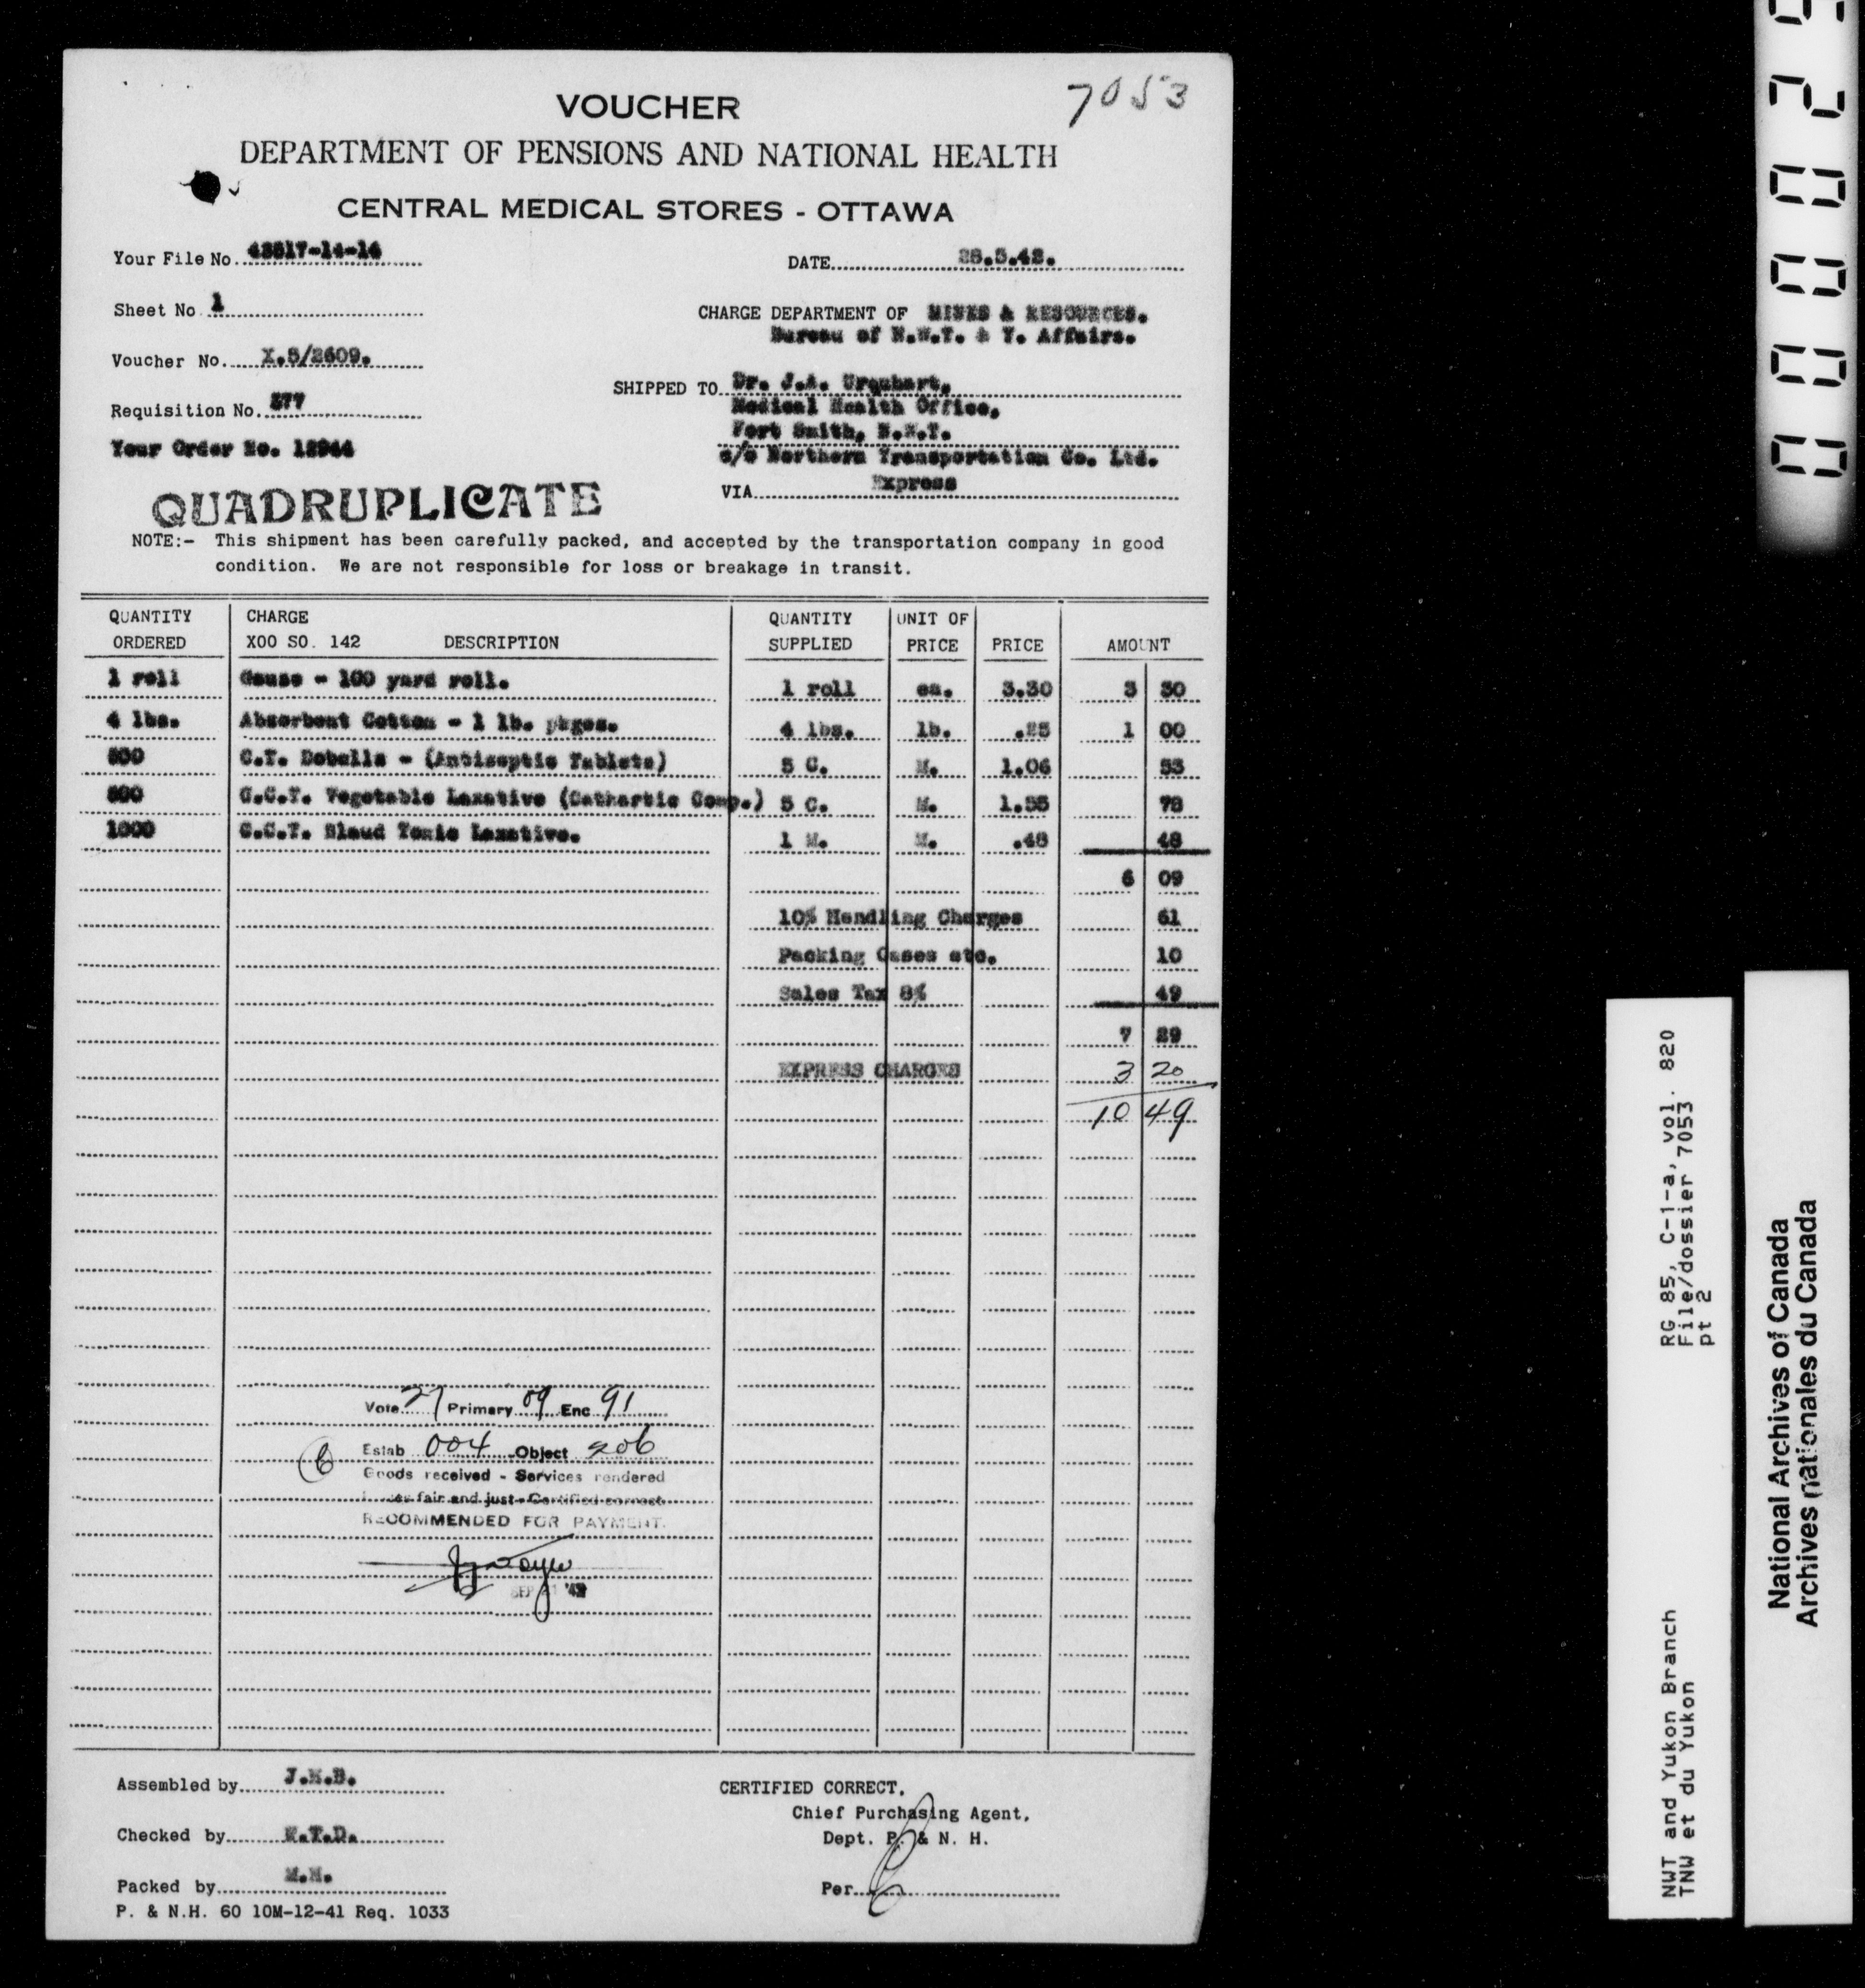 7053
VOUCHER
DEPARTMENT OF PENSIONS AND NATIONAL HEALTH
CENTRAL MEDICAL STORES - OTTAWA
Your File No. 43517-14-14
DATE 28.5.42.
Sheet No. 1
CHARGE DEPARTMENT OF MINES & RESOURCES.
Bureau of N.W.T. & Y. Affairs.
Voucher No. X.S/2609.
SHIPPED TO Dr. J.A. Urquhart,
Medical Health Office,
Requisition No. 577
Fort Smith, N.W.T.
Your Order No. 12944
c/o Northern Transportation Co. Ltd.
VIA Express
QUADRUPLICATE
NOTE:- This shipment has been carefully packed, and accepted by the transportation company in good
condition. We are not responsible for loss or breakage in transit.
QUANTITY ORDERED CHARGE X00 SO. 142 DESCRIPTION QUANTITY SUPPLIED UNIT OF PRICE PRICE AMOUNT
1 roll Gauze - 100 yard roll. 1 roll ea. 3.30 3 30
4 lbs. Absorbent Cotton - 1 lb. pkges. 4 lbs. lb. .25 1 00
500 C.T. Dobells - (Antiseptic Tablets) 5 C. M. 1.06 53
500 C.C.T. Vegetable Laxative (Cathartic Comp.) 5 C. M. 1.55 78
1000 C.C.T. Blaud Tonic Laxative. 1 M. M. .48 48
6 09
10% Handling Charges 61
Packing Cases etc. 10
Sales Tax 8% 49
7 29
EXPRESS CHARGES 3 20
10 49
Vote 27 Primary 09 Enc 91
Estab 004 Object 206
Goods received - Services rendered
fair and just - Certified correct
RECOMMENDED FOR PAYMENT.
SEP 21 '42
Assembled by J.M.B.
CERTIFIED CORRECT,
Chief Purchasing Agent,
Checked by
Dept. P. & N. H.
Packed by M.M.
Per
P. & N.H. 60 10M-12-41 Req. 1033
RG 85, C-1-a, vol. 820
File/dossier 7053
pt 2
NWT and Yukon Branch
TNW et du Yukon
National Archives of Canada
Archives nationales du Canada